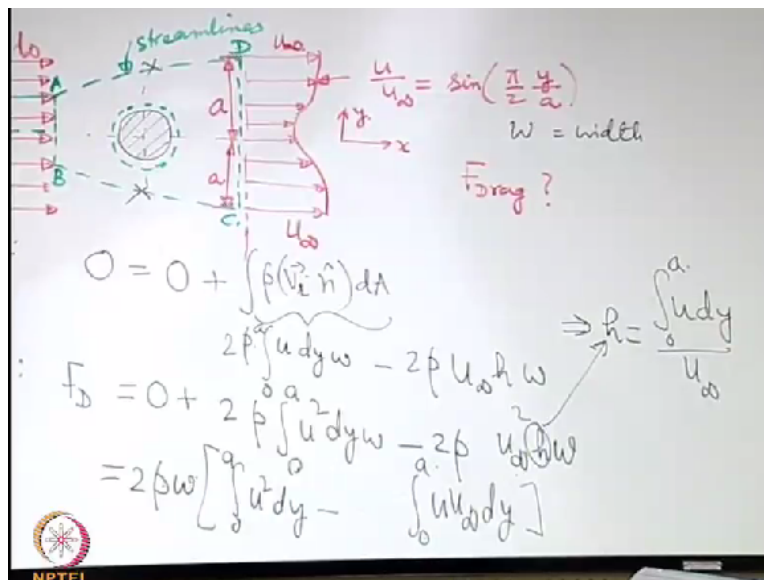 streamlines
U∞
A
D
a
a
B
C
U∞
u/u∞ = sin(π/2 y/a)
y
x
w = width
F_Drag ?
0 = 0 + ∫ρ(V⃗r·n̂)dA
2ρ∫₀ᵃ u dy w − 2ρ U∞ h w
⇒ h = ∫₀ᵃ u dy / U∞
: F_D = 0 + 2ρ∫₀ᵃ u² dy w − 2ρ U∞² h w
= 2ρw [∫₀ᵃ u² dy − ∫₀ᵃ u U∞ dy]
NPTEL